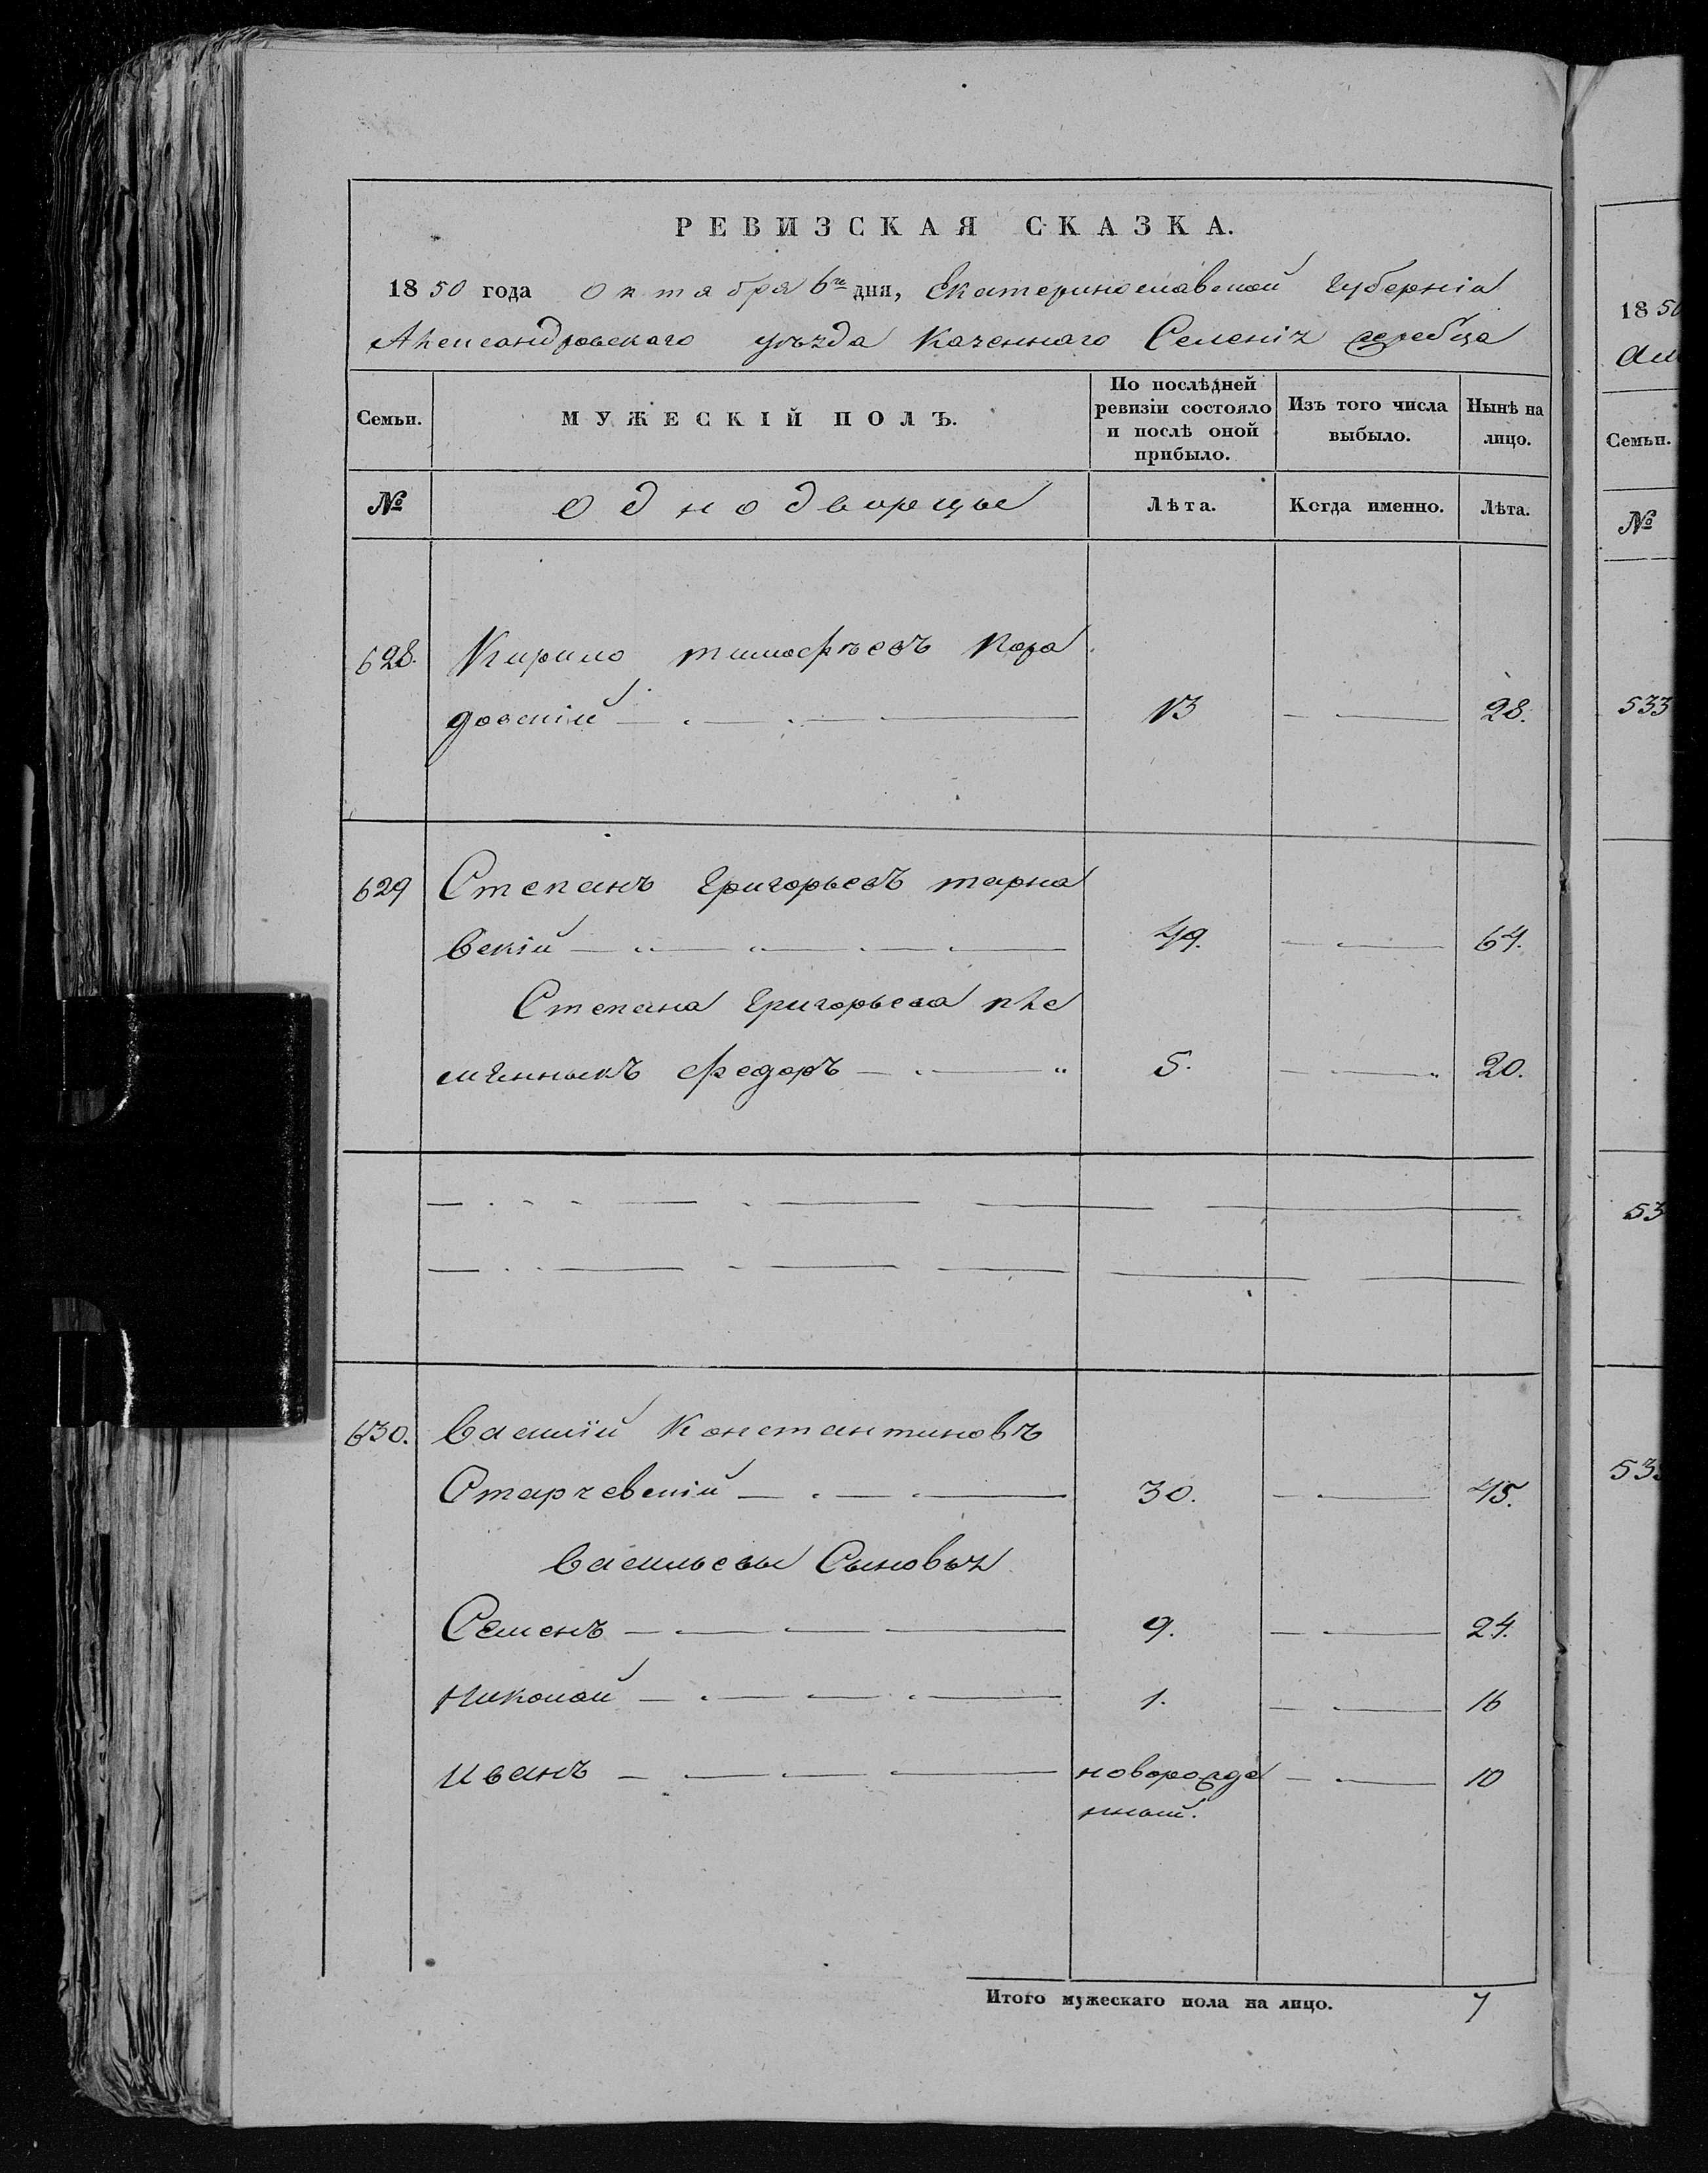 РЕВИЗСКАЯ СКАЗКА.
1850 года октября 6го дня, Екатеринославской Губерніи
Александровскаго уѣзда Казеннаго Селенія жеребца
Семьи. МУЖЕСКІЙ ПОЛЪ. По послѣдней ревизіи состояло и послѣ оной прибыло. Изъ того числа выбыло. Нынѣ на лицо.
№ однодворцы Лѣта. Когда именно. Лѣта.
628. Кирило тимофѣевъ
довскій 13 28.
629 Степанъ Григорьевъ тарна
вскій 49. 64.
Степана Григорьева пле
мѣнныкъ федоръ 5. 20.
630. Василій Константиновъ
Старчевскій 30. 45.
Васильевы Сыновья
Семенъ 9. 24.
Николай 1. 16
Иванъ новорожде 10
нный.
Итого мужескаго пола на лицо. 7
1850
Семьи.
№
533
53
53